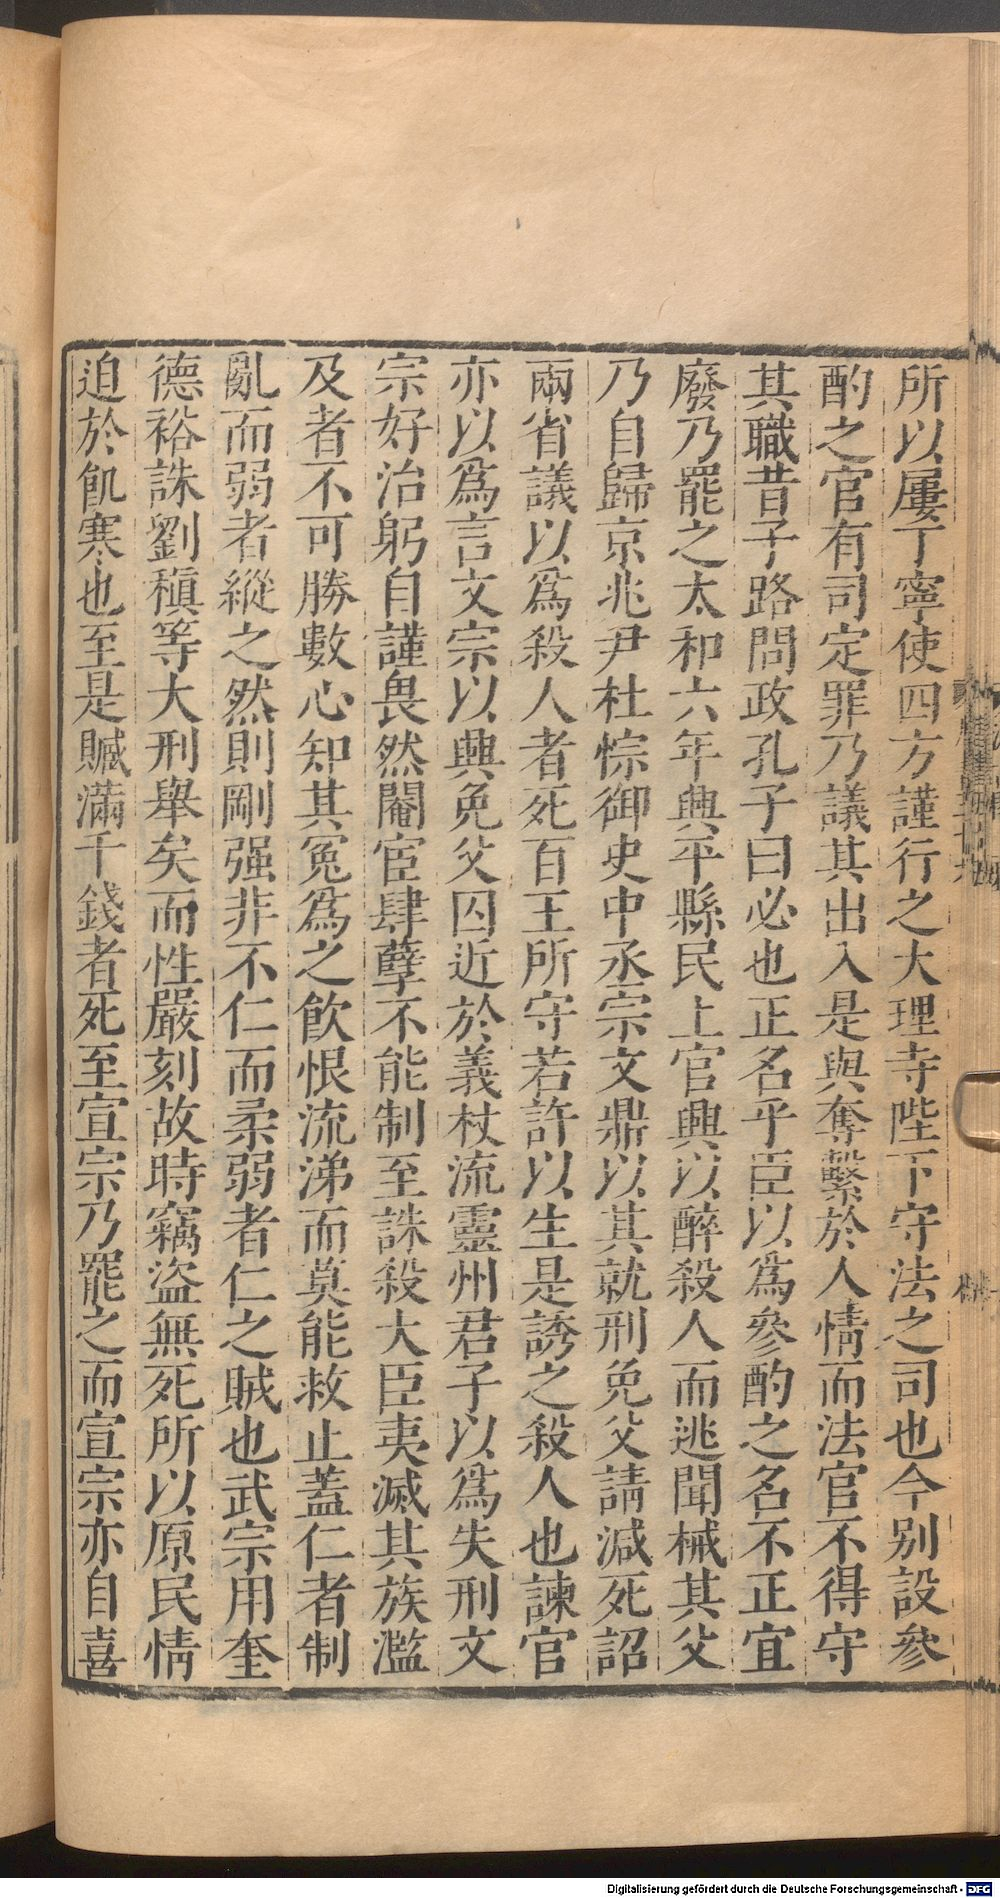 所以屢丁寧使四方謹行之大理寺陛下守法之司也今別設參
酌之官有司定罪乃議其出入是與奪繫於人情而法官不得守
其職昔子路問政孔子曰必也正名乎臣以爲參酌之名不正宜
廢乃罷之太和六年興平縣民上官興以醉殺人而逃聞械其父
乃自歸京兆尹杜悰御史中丞宗文鼎以其就刑免父請減死詔
兩省議以爲殺人者死百王所守若許以生是誘之殺人也諫官
亦以爲言文宗以興免父囚近於義杖流靈州君子以爲失刑文
宗好治躬自謹畏然閹宦肆孽不能制至誅殺大臣夷滅其族濫
及者不可勝數心知其冤爲之飲恨流涕而莫能救止蓋仁者制
亂而弱者縱之然則剛强非不仁而柔弱者仁之賊也武宗用奎
德裕誅劉稹等大刑舉矣而性嚴刻故時竊盜無死所以原民情
迫於飢寒也至是贓滿千錢者死至宣宗乃罷之而宣宗亦自喜
Digitalisierung gefördert durch die Deutsche Forschungsgemeinschaft - DFG